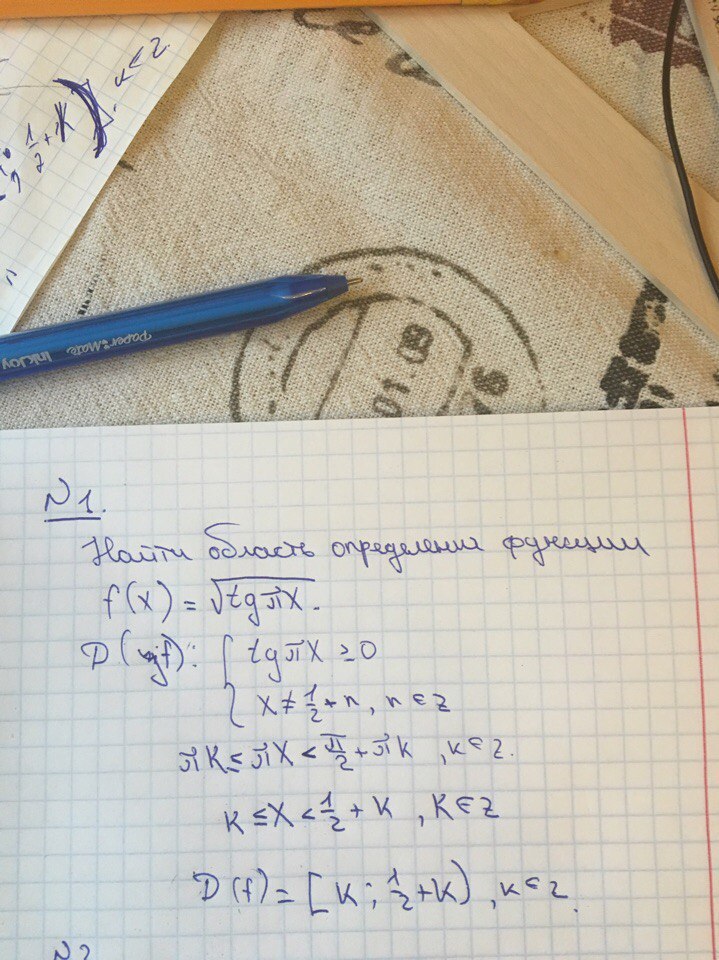 ; 1/2 + K), K ∈ Z.
Paper Mate InkJoy
01.09
N1.
Найти область определения функции
f(x) = √tg πx.
D(f): { tg πx ≥ 0
{ x ≠ 1/2 + n, n ∈ Z
πK ≤ πx < π/2 + πK, K ∈ Z.
K ≤ x < 1/2 + K, K ∈ Z
D(f) = [K; 1/2 + K), K ∈ Z.
N2